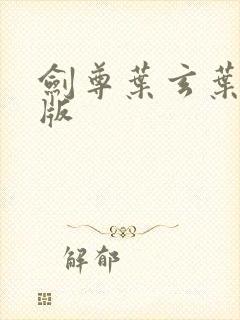 劍尊葉玄葉
版
解郁